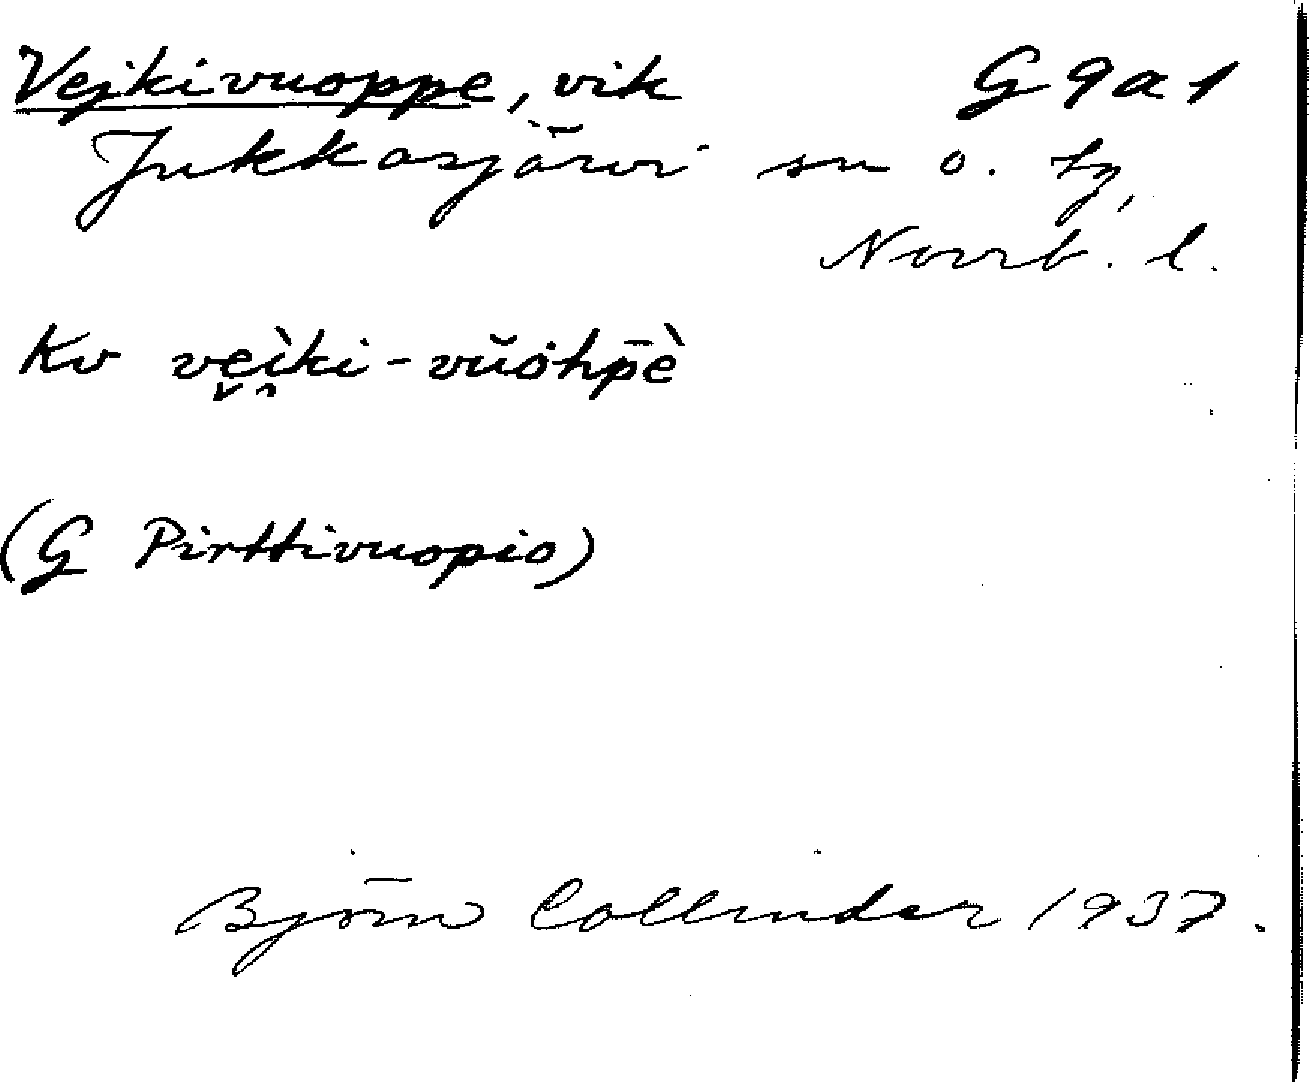 Vejkivuoppe, vik G9a1
Jukkasjärvi sn o. tg,
Norrb. l.
Kv vẹì̭ki-vŭȯhp̄è
(G Pirttivuopio)
Björn Collinder 1937.